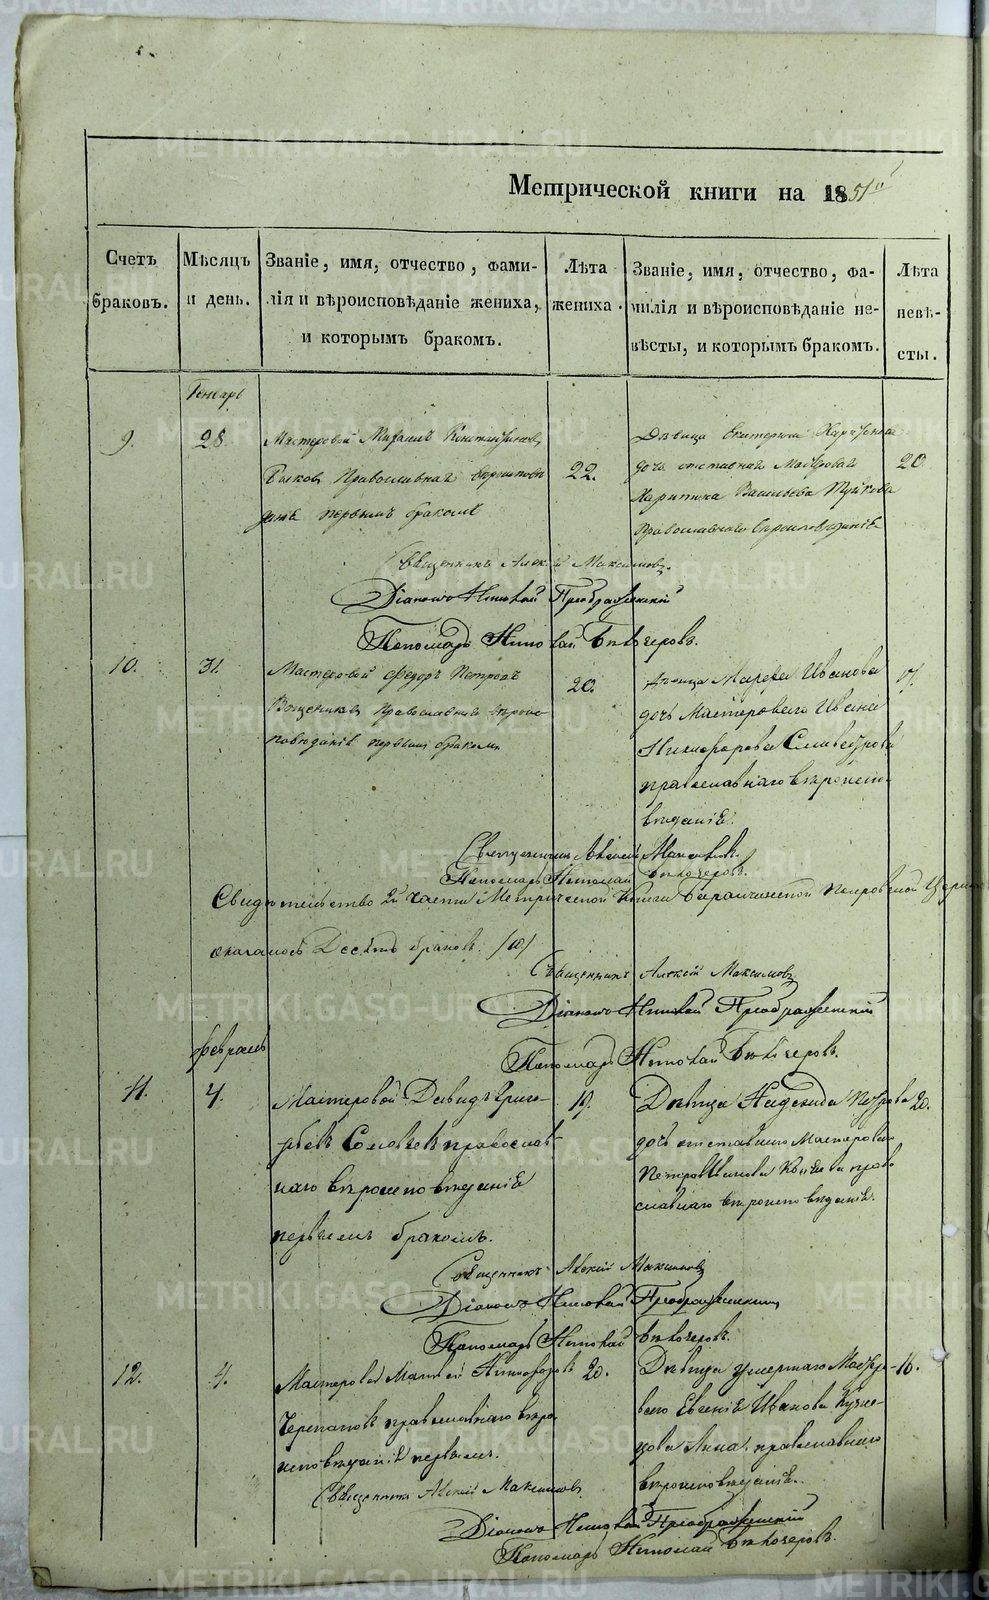 METRIKI.GASO-URAL.RU
Метрической книги на 1851й
Счетъ браковъ.
Мѣсяцъ и день.
Званіе, имя, отчество, фами-
лія и вѣроисповѣданіе жениха,
и которымъ бракомъ.
Лѣта жениха.
Званіе, имя, отчество, фа-
милія и вѣроисповѣданіе не-
вѣсты, и которымъ бракомъ.
Лѣта невѣ-
сты.
Генварь
9.
28.
Мастеровой Михаилъ Константиновъ
Быковъ Православнаго вѣроисповѣ
данія первымъ бракомъ
22.
Дѣвица Екатерина Харитонова
дочь отставнаго Мастероваго
Харитона Васильева
Православнаго вѣроисповѣданія
20.
Священникъ Алексій Максимовъ.
Діаконъ Николай Преображенскій
Пономарь Николай Бѣлочеровъ.
10.
31.
Мастеровой Федоръ Петровъ
Православнаго вѣроис-
повѣданія первымъ бракомъ
20.
Дѣвица Марфа Иванова
дочь Мастероваго Ивана
Никифорова Сливестрова
православнаго вѣроиспо-
вѣданія.
17.
Священникъ Алексій Максимовъ.
Пономарь Николай Бѣлочеровъ.
Свидѣтельство 2й части Метрической Книги Баранчинской Петровской Церкви
оказалось Десять браковъ. /10/
Священникъ Алексій Максимовъ
Діаконъ Николай Преображенскій
Пономарь Николай Бѣлочеровъ.
Февраль
11.
4.
Мастеровой Давидъ Григо-
рьевъ Соловьевъ православ-
наго вѣроисповѣданія
первымъ бракомъ.
19.
Дѣвица Надежда Петрова
дочь отставнаго Мастероваго
Петра Иванова право
славнаго вѣроисповѣданія.
20.
Священникъ Алексій Максимовъ
Діаконъ Николай Преображенскій
Пономарь Николай Бѣлочеровъ.
12.
4.
Мастеровой Матвей Никифоровъ
Черепановъ православнаго вѣро
исповѣданія первымъ.
20.
Дѣвица умершаго Мастеро-
ваго Евсенія Иванова Кузне-
цова Анна православнаго
вѣроисповѣданія.
16.
Священникъ Алексій Максимовъ.
Діаконъ Николай Преображенскій
Пономарь Николай Бѣлочеровъ.